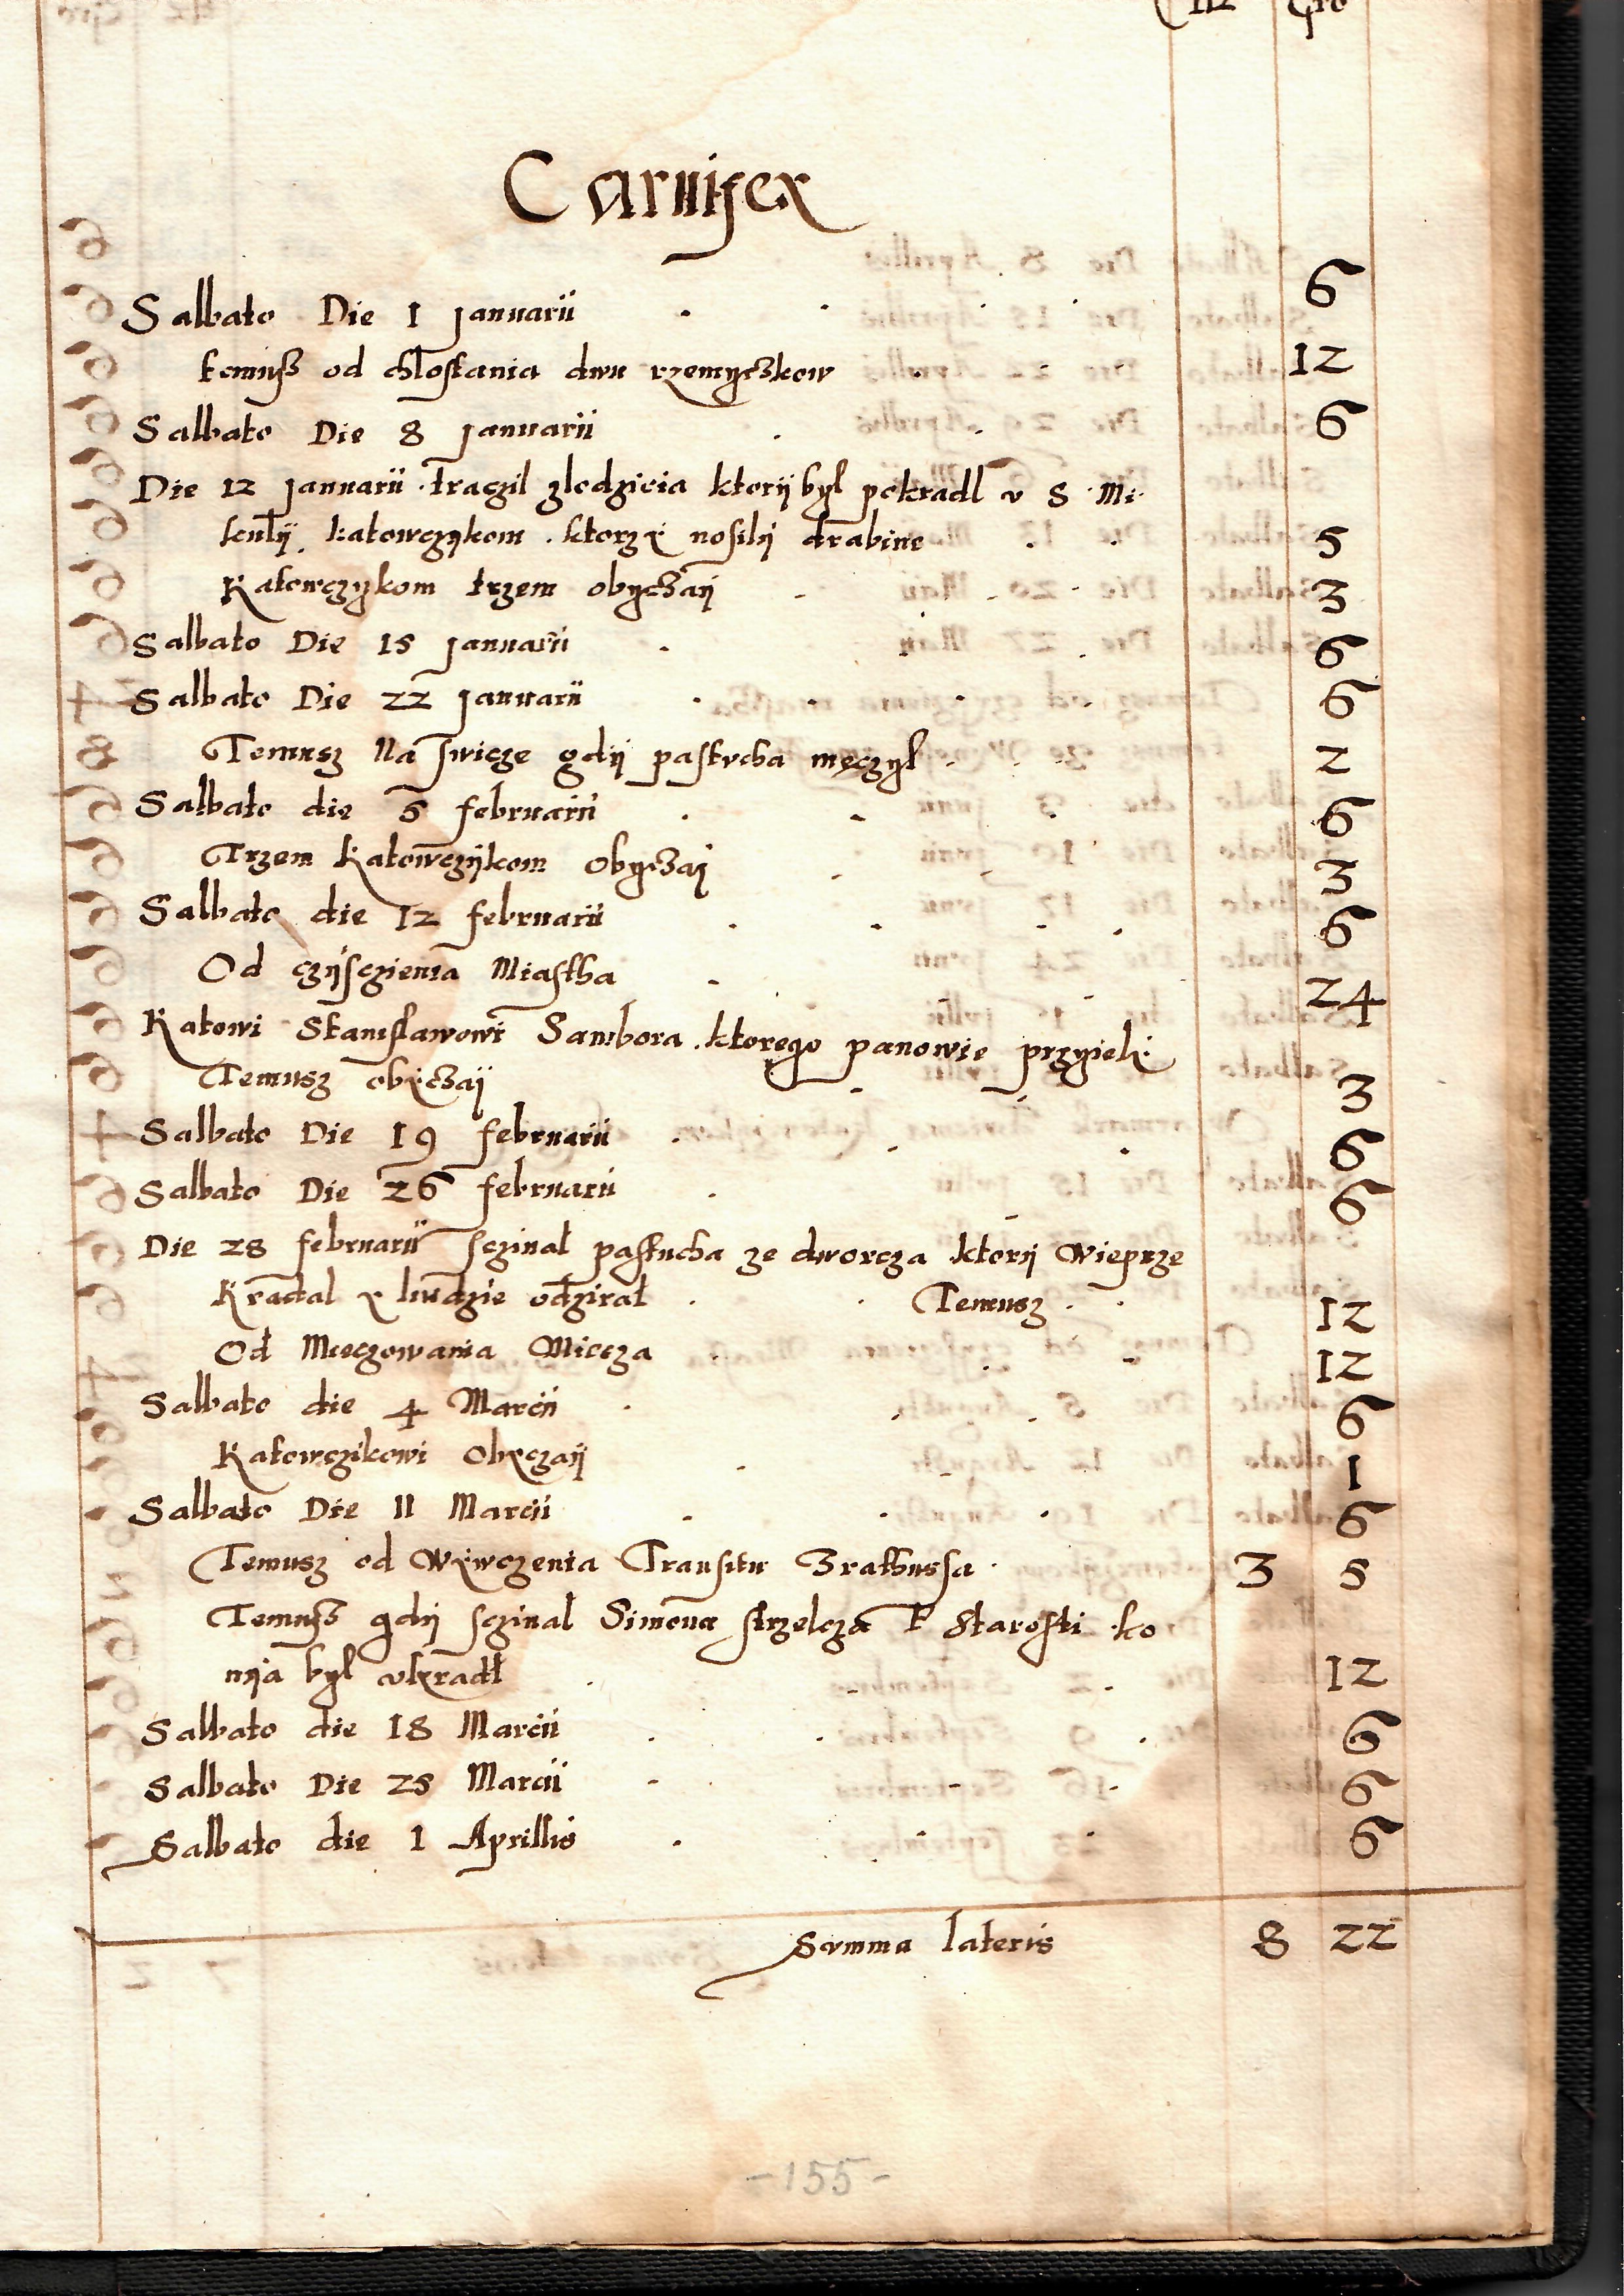 mr gro
Carnifex
Salbato Die 1 Januarii 6
temusz od chlostania dwu rzemyczkow 12
Salbato Die 8 Januarii 6
Die 12 Januarii traczil zlodzieia ktorij byl pokradl v S Mi
katowczykom ktorzy nosilij drabine 5
Katowczykom trzem obyczaij 3
Salbato Die 15 Januarii 6
Salbato Die 22 Januarii 6
Temusz Na swicze gdij pastvcha męczyl 2
Salbato die 5 februarii 6
Trzem Katowczijkom Obyczaj 3
Salbato die 12 februarii 6
Od czijsczienia Miastha 24
Katowi Stanislawowi Sambora ktorego panowie przyieli
Temusz obyczaij 3
Salbato Die 19 februarii 6
Salbato Die 26 februarii 6
Die 28 februarii sczinal pastucha ze dworcza ktorij Wieprze
Kradal y liudzie odziral Temusz 12
Od Mieczowania Miecza 12
Salbato die 4 Marcii 6
Katowczikowi Obyczaij 1
Salbato Die 11 Marcii 6
Temusz od Wywczenia Transitu Brathussa 3 5
Temusz gdij sczinal Simona strzelcza P Starosti ko
nija byl vkradl 12
Salbato die 18 Marcii 6
Salbato Die 25 Marcii 6
Salbato die 1 Aprillis 6
Svmma lateris 8 22
-155-